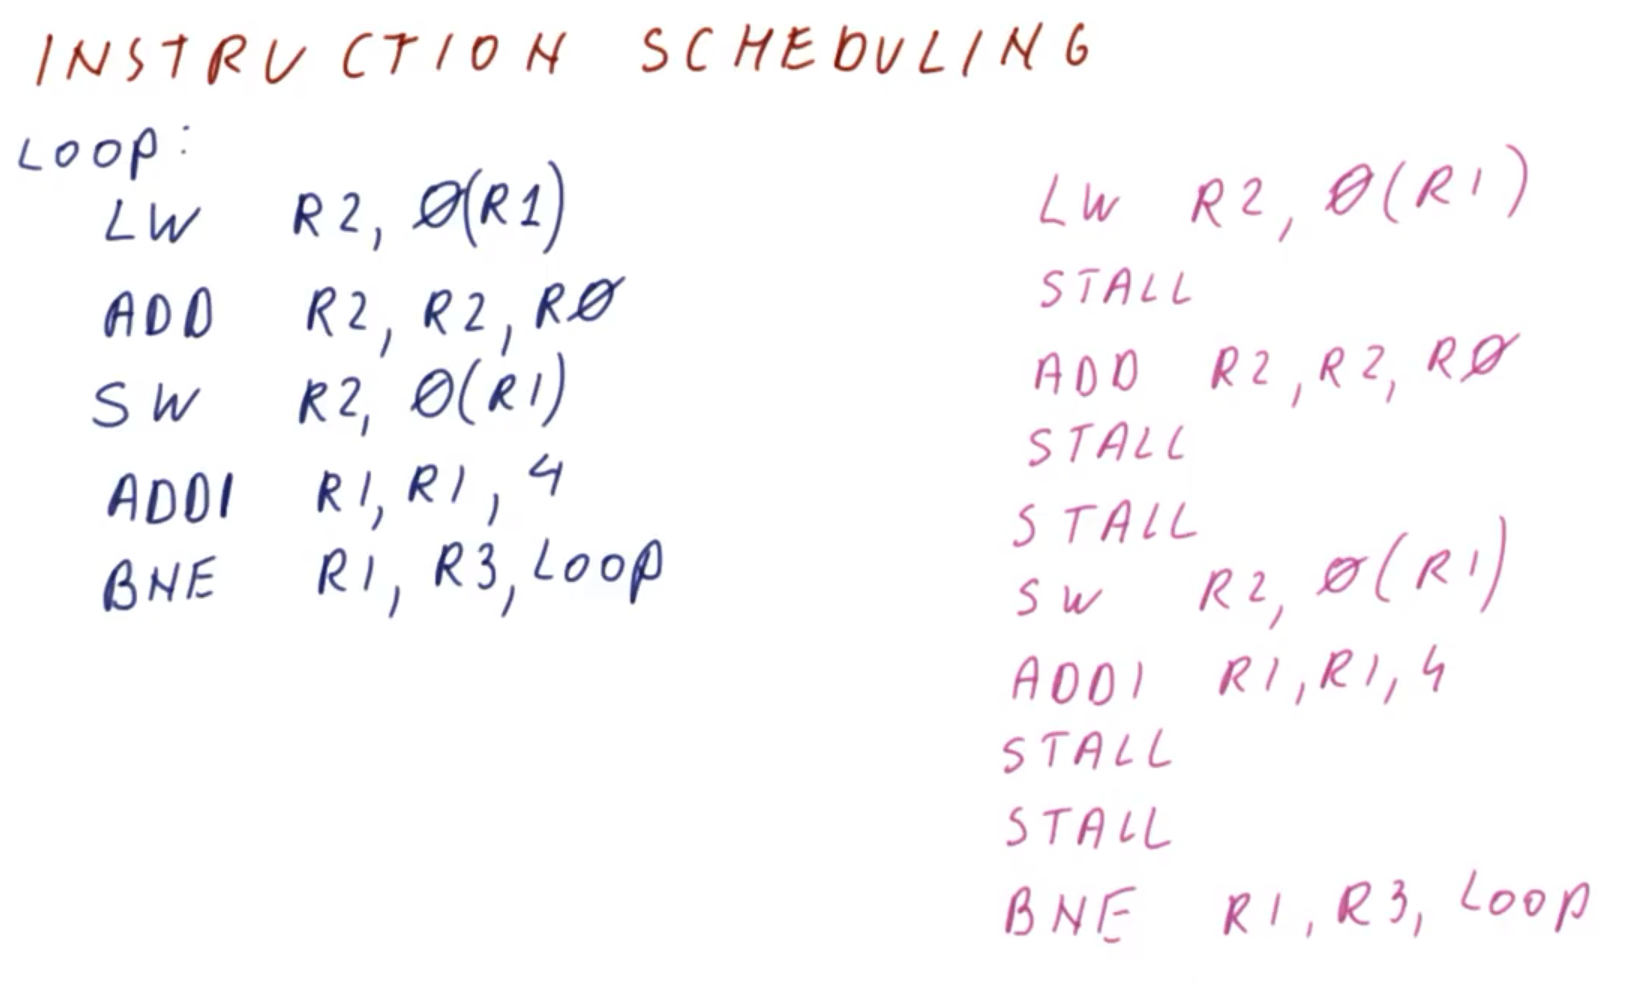 INSTRUCTION SCHEDULING
LOOP:
LW R2, Ø(R1)
ADD R2, R2, RØ
SW R2, Ø(R1)
ADDI R1, R1, 4
BNE R1, R3, LOOP
LW R2, Ø(R1)
STALL
ADD R2, R2, RØ
STALL
STALL
SW R2, Ø(R1)
ADDI R1, R1, 4
STALL
STALL
BNE R1, R3, LOOP